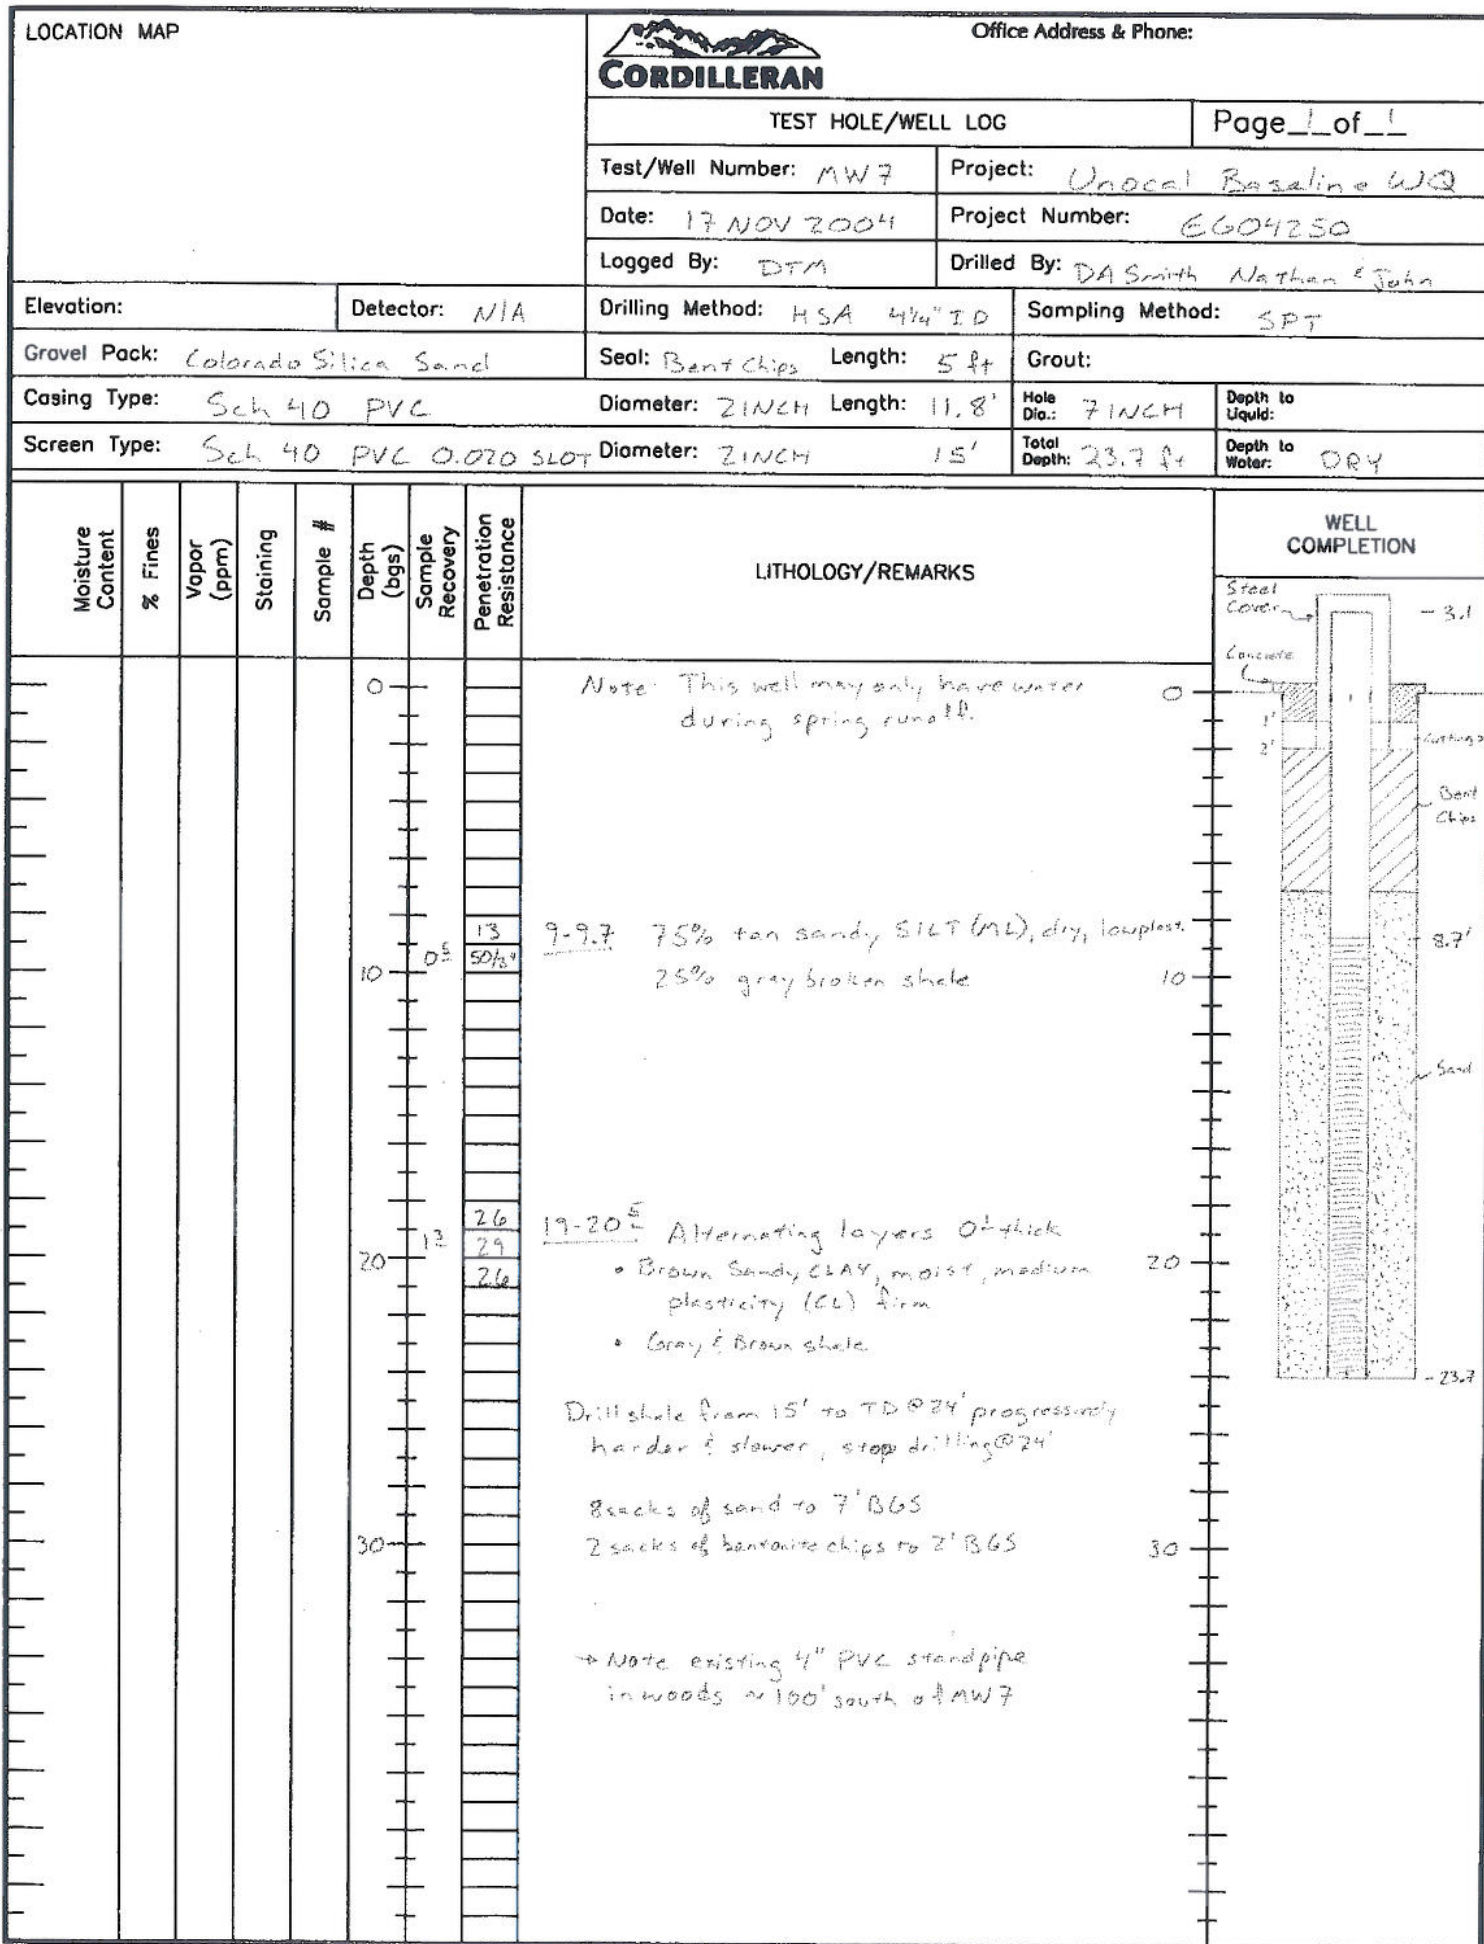 LOCATION MAP
CORDILLERAN
Office Address & Phone:
TEST HOLE/WELL LOG
Page 1 of 1
Test/Well Number: MW7
Project: Unocal Baseline WQ
Date: 17 NOV 2004
Project Number: EG04250
Logged By: DTM
Drilled By: DA Smith Nathan & John
Elevation:
Detector: N/A
Drilling Method: HSA 4¼" ID
Sampling Method: SPT
Gravel Pack: Colorado Silica Sand
Seal: Bent Chips Length: 5 ft
Grout:
Casing Type: Sch 40 PVC
Diameter: 2INCH Length: 11.8'
Hole Dia.: 7INCH
Depth to Liquid:
Screen Type: Sch 40 PVC 0.020 SLOT
Diameter: 2INCH 15'
Total Depth: 23.7 ft
Depth to Water: DRY
Moisture Content
% Fines
Vapor (ppm)
Staining
Sample #
Depth (bgs)
Sample Recovery
Penetration Resistance
LITHOLOGY/REMARKS
WELL COMPLETION
Steel Cover
-3.1
Concrete
0
Note: This well may only have water
during spring runoff.
0
1'
2'
Cuttings
Bent Chips
13
9-9.7 75% tan sandy SILT (ML), dry, lowplast.
8.7'
0⁵ 50/3"
10
25% gray broken shale
10
Sand
26
19-20⁵ Alternating layers 0¹ thick
1³ 29
20
26
• Brown Sandy CLAY, moist, medium
20
plasticity (CL) firm
• Gray & Brown shale
-23.7
Drill shale from 15' to TD @ 24' progressively
harder & slower, stop drilling @ 24'
8 sacks of sand to 7' BGS
30
2 sacks of bentonite chips to 2' BGS
30
→ Note existing 4" PVC standpipe
in woods ~ 100' south of MW7